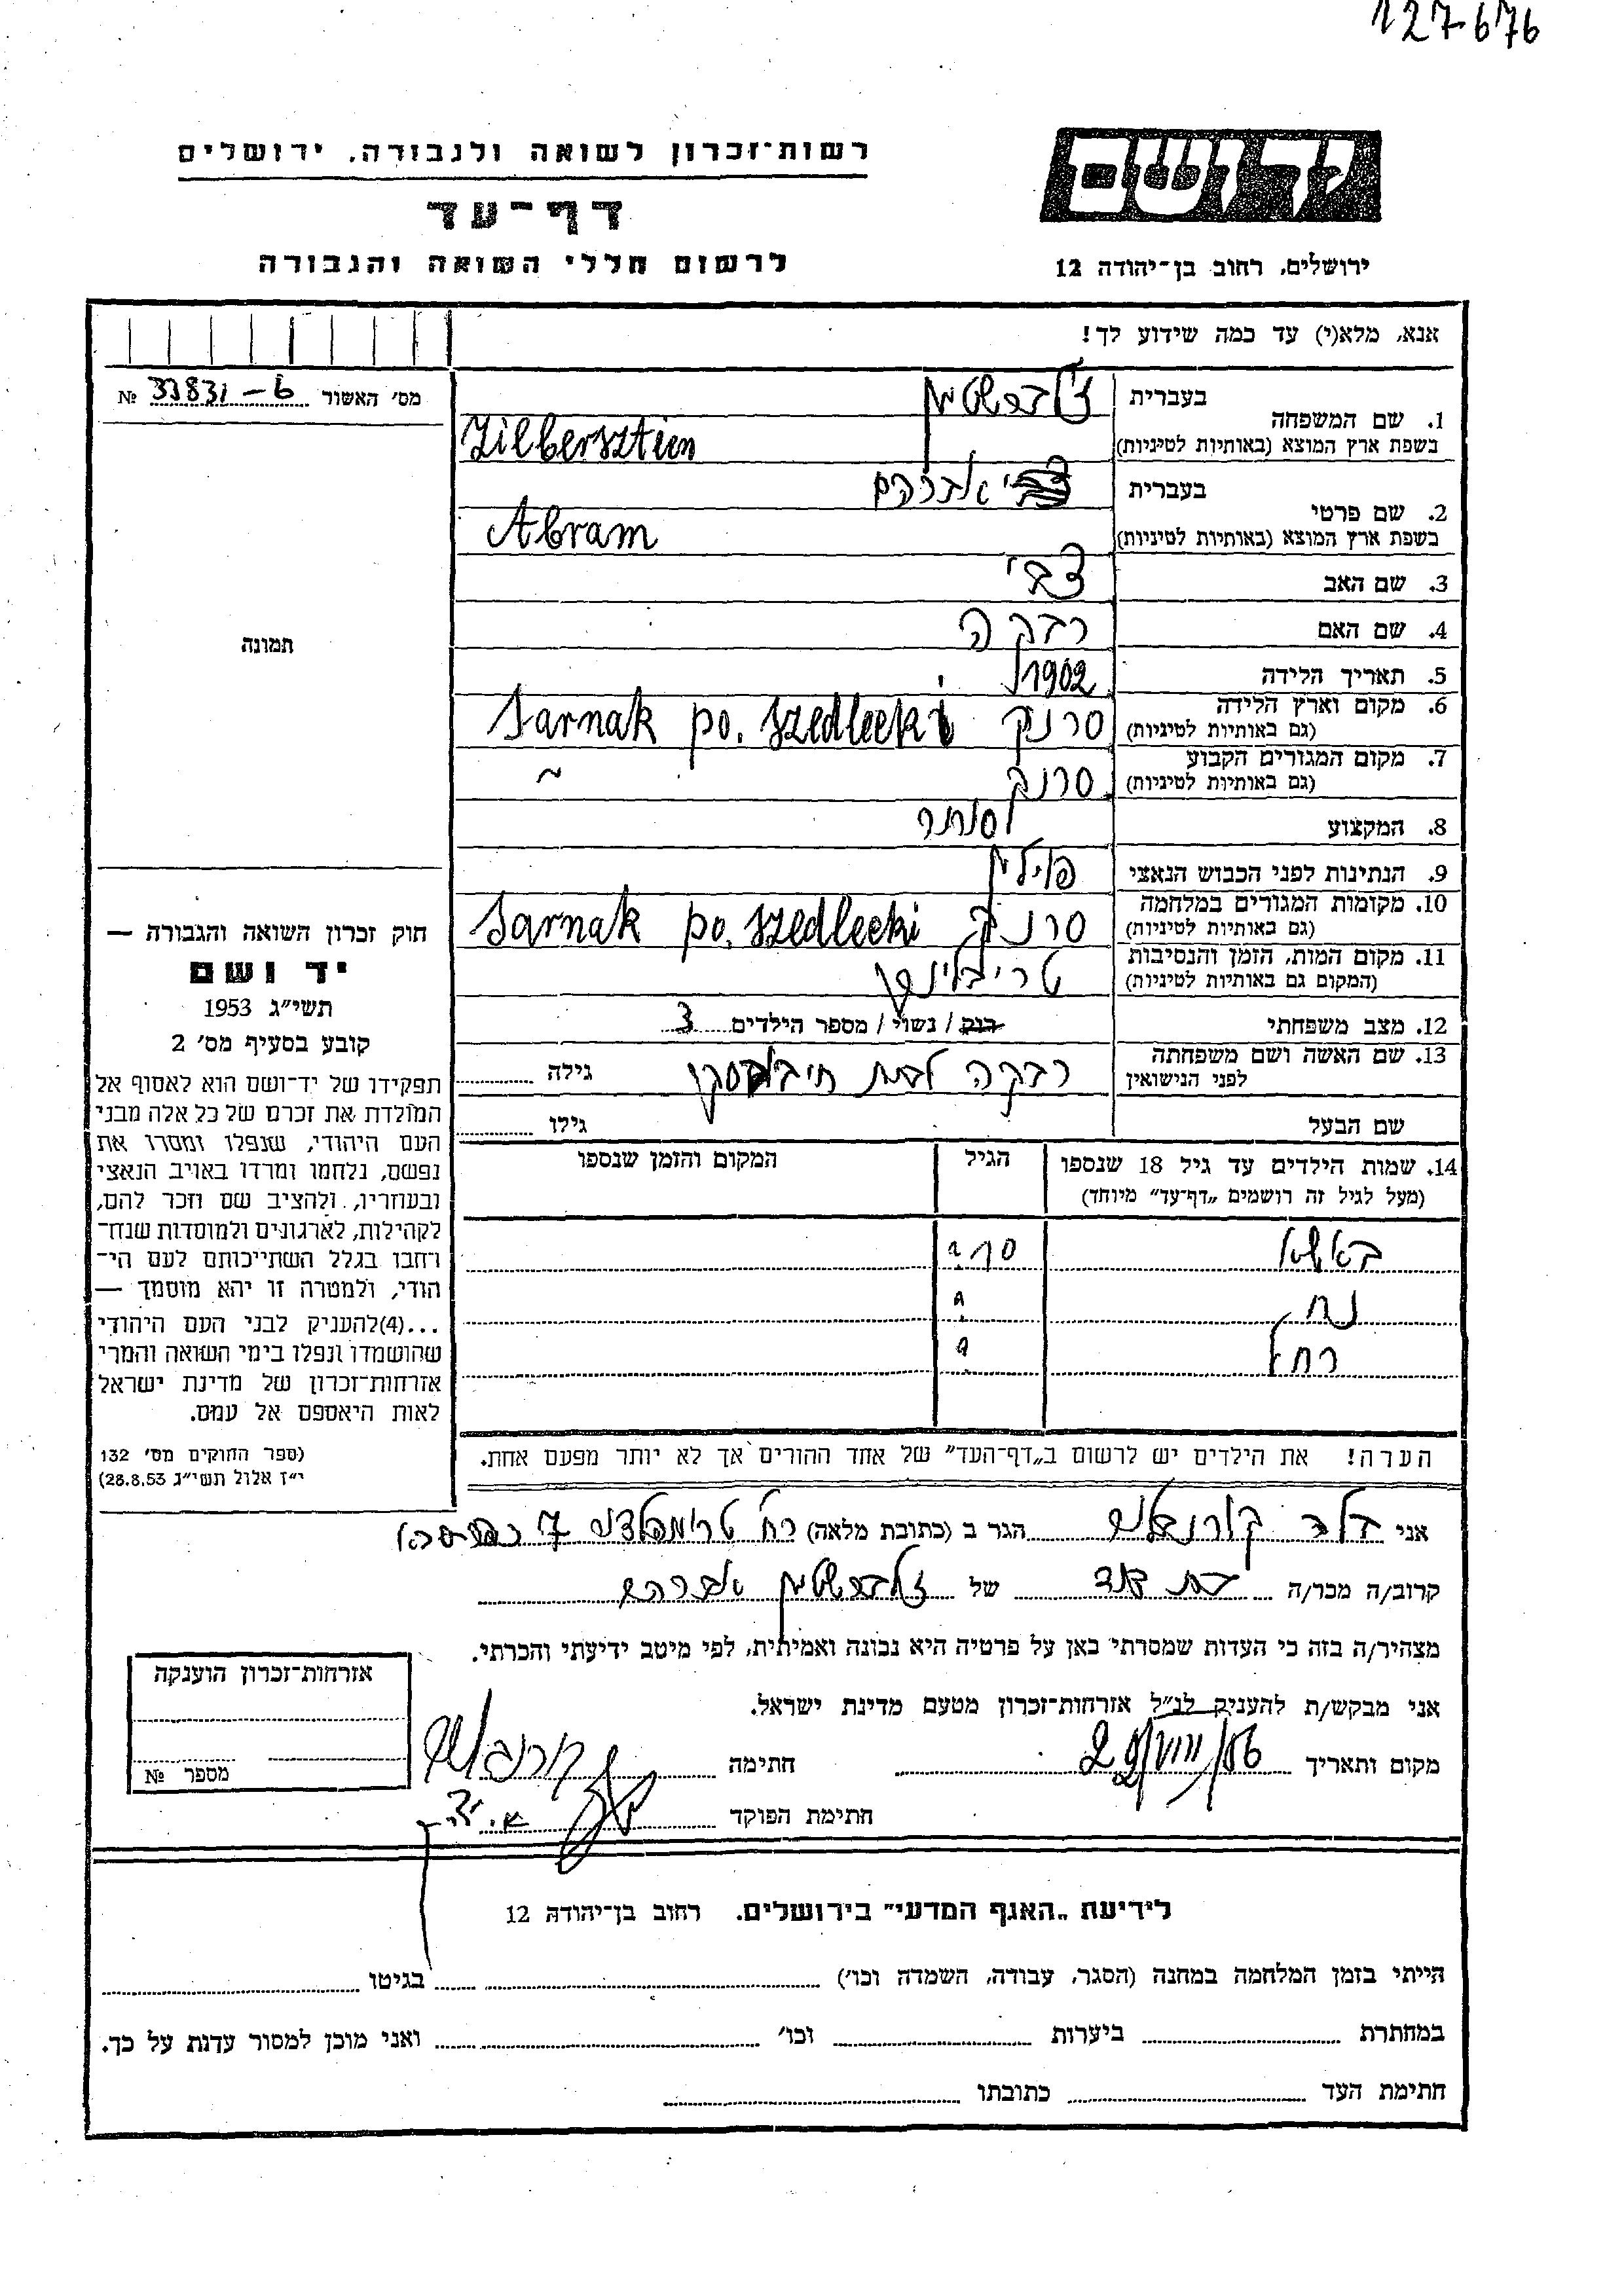 127676
רשות־זכרון לשואה ולגבורה, ירושלים
יד ושם
דף־עד
לרשום חללי השואה והגבורה
ירושלים, רחוב בן־יהודה 12
אנא, מלא(י) עד כמה שידוע לך!
מס' האשור 33831-6 №
1. שם המשפחה
בעברית זילברשטיין
בשפת ארץ המוצא (באותיות לטיניות) Zilbersztien
2. שם פרטי
בעברית אברהם
בשפת ארץ המוצא (באותיות לטיניות) Abram
3. שם האב צבי
4. שם האם רבקה
תמונה
5. תאריך הלידה 1902
6. מקום וארץ הלידה
(גם באותיות לטיניות) סרנק Sarnak po. Szedlecki
7. מקום המגורים הקבוע
(גם באותיות לטיניות) סרנק ~
8. המקצוע סוחר
9. הנתינות לפני הכבוש הנאצי פולין
10. מקומות המגורים במלחמה
(גם באותיות לטיניות) סרנק Sarnak po. Szedlecki
11. מקום המות, הזמן והנסיבות
(המקום גם באותיות לטיניות) טריבלינקה
12. מצב משפחתי רווק / נשוי / מספר הילדים 3
13. שם האשה ושם משפחתה
לפני הנישואין רבקה לבית גילה
שם הבעל גילו
14. שמות הילדים עד גיל 18 שנספו
(מעל לגיל זה רושמים „דף־עד" מיוחד)
הגיל
המקום והזמן שנספו
באשא
נח
רחל
הערה! את הילדים יש לרשום ב„דף־העד" של אחד ההורים אך לא יותר מפעם אחת.
חוק זכרון השואה והגבורה —
יד ושם
תשי"ג 1953
קובע בסעיף מס' 2
תפקידו של יד־ושם הוא לאסוף אל
המולדת את זכרם של כל אלה מבני
העם היהודי, שנפלו ומסרו את
נפשם, נלחמו ומרדו באויב הנאצי
ובעוזריו, ולהציב שם וזכר להם,
לקהילות, לארגונים ולמוסדות שנח־
רחבו בגלל השתייכותם לעם הי־
הודי, ולמטרה זו יהא מוסמך —
...(4)להעניק לבני העם היהודי
שהושמדו ונפלו בימי השואה והמרי
אזרחות־זכרון של מדינת ישראל
לאות היאספם אל עמם.
(ספר החוקים מס' 132
י"ז אלול תשי"ג 28.8.53)
אני הגר ב (כתובת מלאה) רח' טרומפלדור 7
קרוב/ה מכר/ה בת דוד של זילברשטיין אברהם
מצהיר/ה בזה כי העדות שמסרתי כאן על פרטיה היא נכונה ואמיתית, לפי מיטב ידיעתי והכרתי.
אני מבקש/ת להעניק לנ"ל אזרחות־זכרון מטעם מדינת ישראל.
מקום ותאריך 29/VIII/56 חתימה
חתימת הפוקד
אזרחות־זכרון הוענקה
מספר №
לידיעת „האגף המדעי" בירושלים. רחוב בן־יהודה 12
הייתי בזמן המלחמה במחנה (הסגר, עבודה, השמדה וכו') בגיטו
במחתרת ביערות וכו' ואני מוכן למסור עדות על כך.
חתימת העד כתובתו